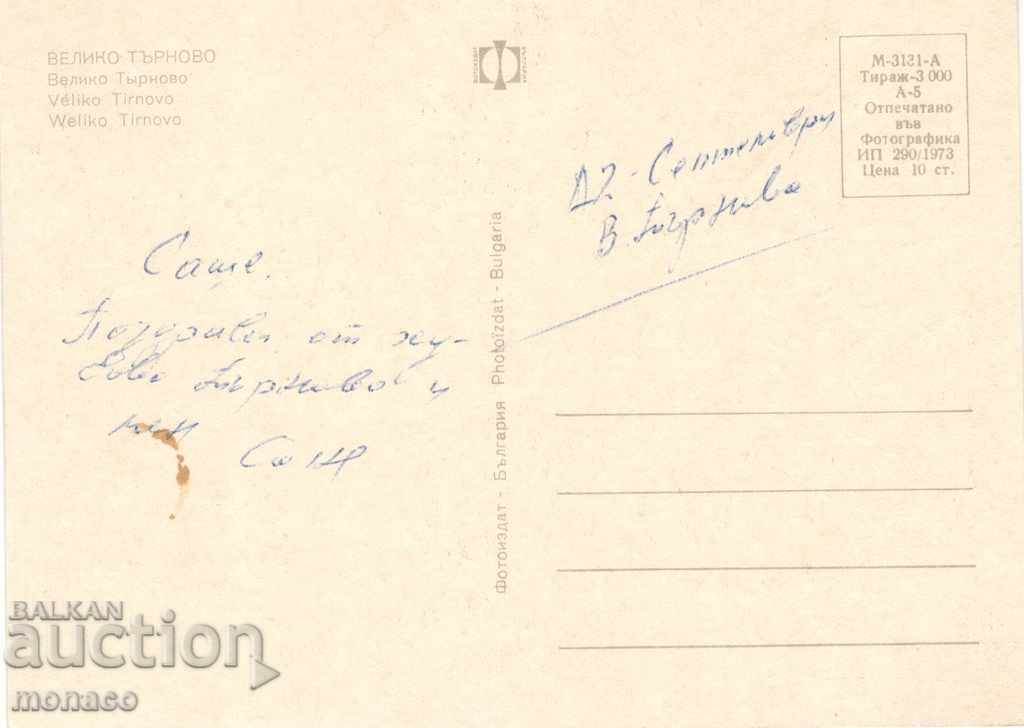 ВЕЛИКО ТЪРНОВО
Велико Тырново
Véliko Tirnovo
Weliko Tirnovo
Саше,
Поздрави от ху-
Търново и
мен
М-3131-А
Тираж-3 000
А-5
Отпечатано
във
Фотографика
ИП 290/1973
Цена 10 ст.
12 - Септември
В. Търново
Фотоиздат - България Photoizdat - Bulgaria
BALKAN
auction
monaco